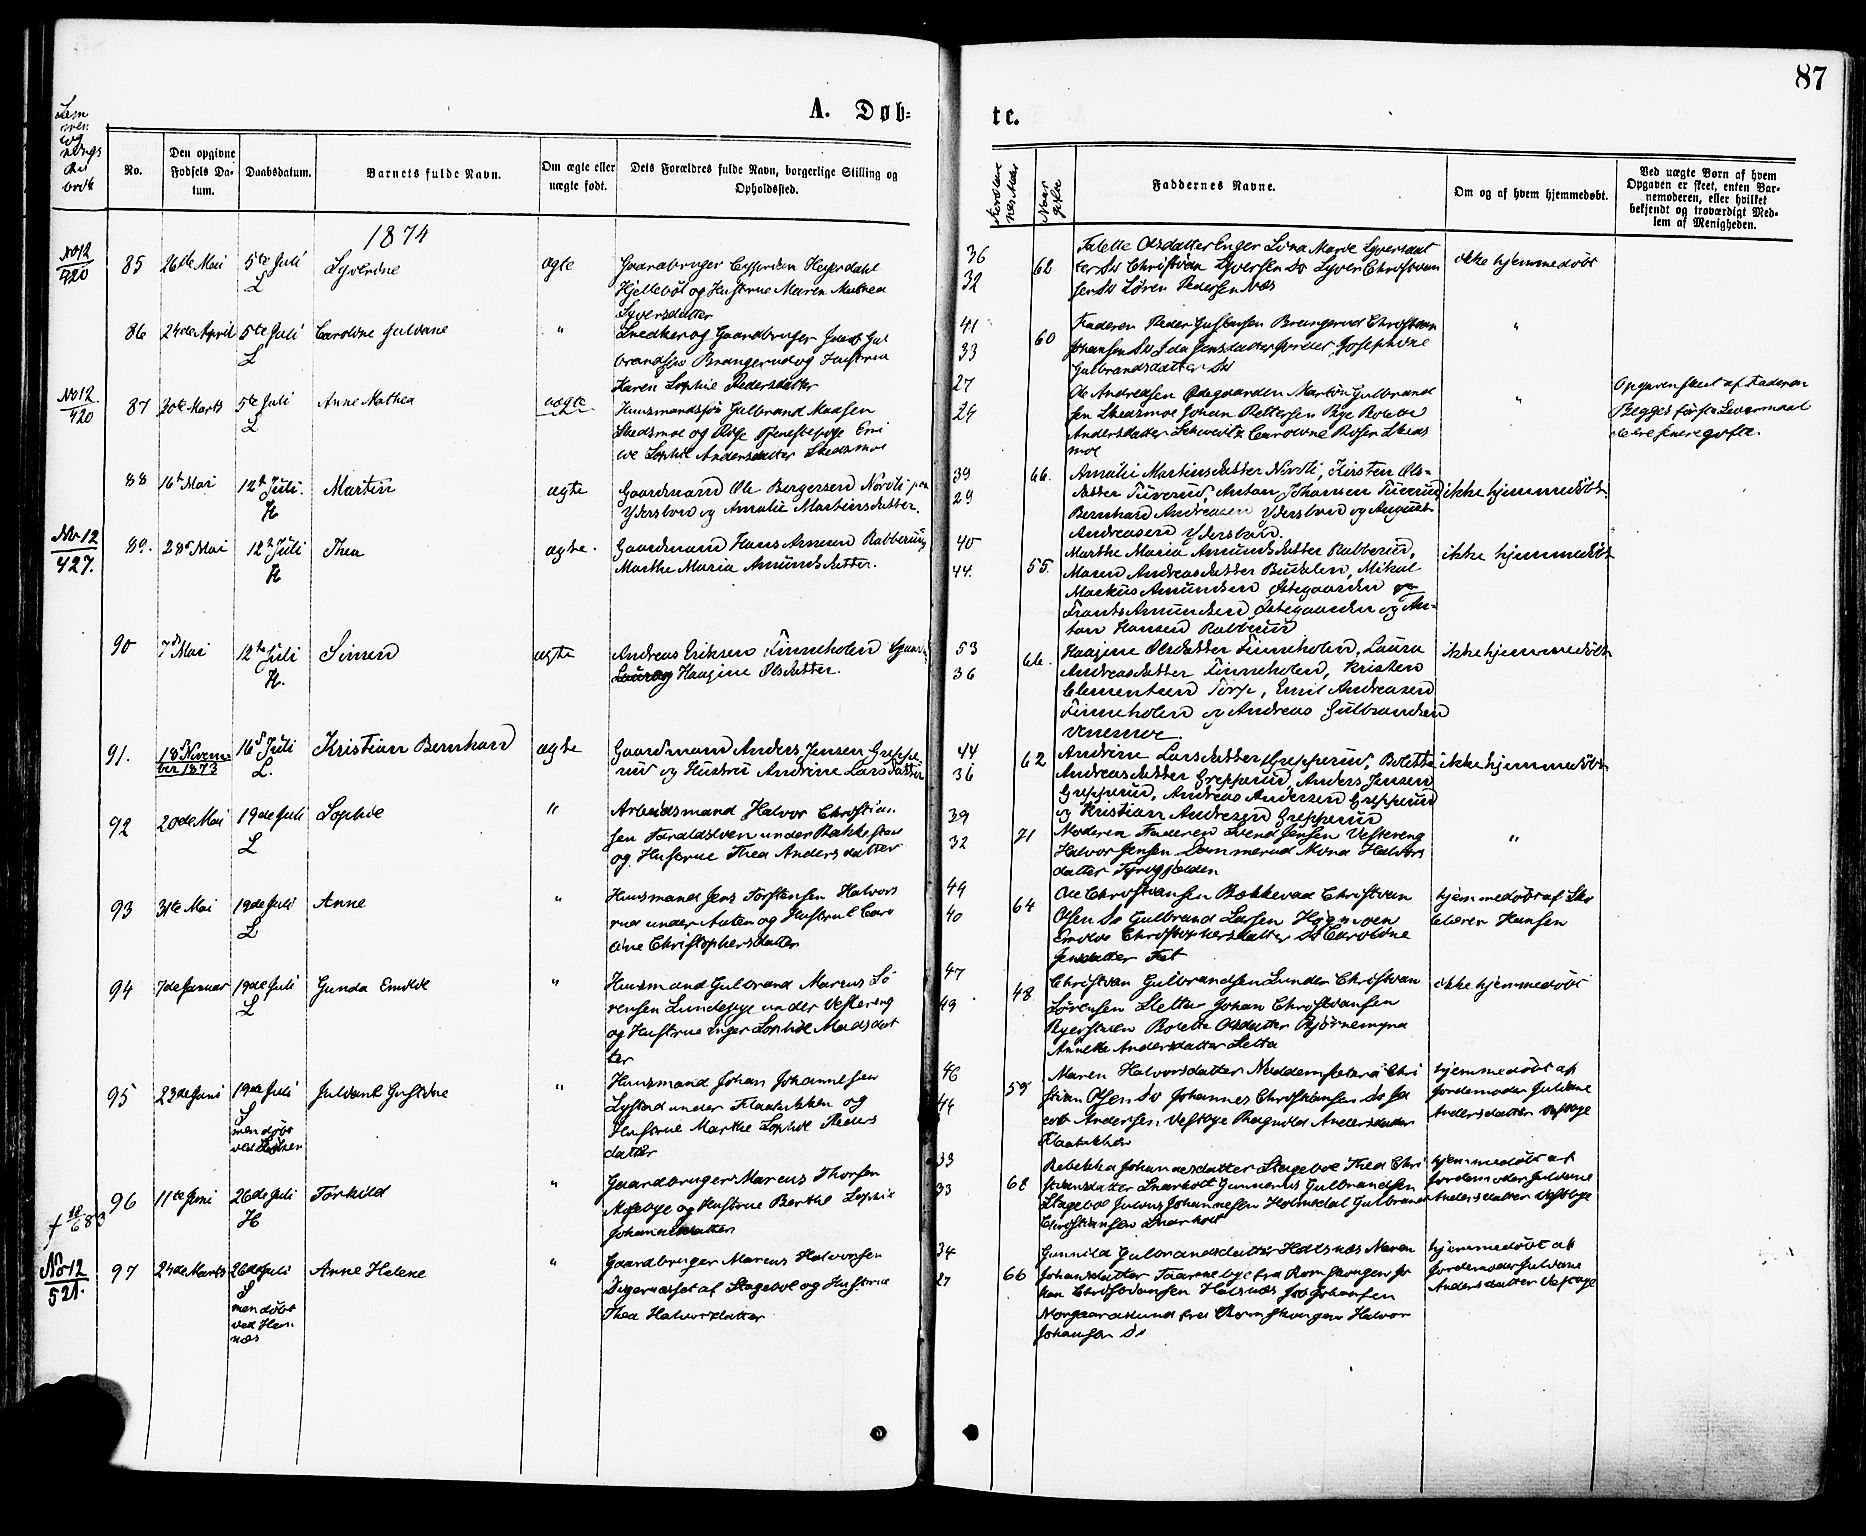 87
A. Døb-
te.
No.
Den opgivne Fødsels Da-tum.
Daabsdatum.
Barnets fulde Navn.
Om ægte eller uægte født.
Dets Forældres fulde Navn, borgerlige Stilling og Opholdssted.
Faddernes Navne.
Om og af hvem hjemmedøbt.
Ved uægte Børn af hvem Opgaven er skeet, enten Bar-nemoderen, eller hvilket bekjendt og troværdigt Med-lem af Menigheden.
1874
No 12
420
85
26de Mai
5te Juli
L
Lyverine
ægte
Gaardbruger Heyerdahl
Hjellebøl og Hustrue Maren Mathea
Lyversdatter
36
32
62
Olsdatter Enger Lina Marie Lyversdat
ter Do Christian Lyversen Do Lyver Christian
sen Do Søren Pedersen Næs
ikke hjemmedøbt
86
24de April
5te Juli
L
Caroline Juliane
"
Snedker og Gaardbruger Gul
brandsen Brangerud og Hustrue
Karen Sophie Pedersdatter
41
33
60
Faderen Peder Gustavsen Brangerud Christian
Johansen Do Ida Jensdatter Josephine
Gulbrandsdatter Do
"
No 12
420
87
20te Marts
5te Juli
L
Anne Mathea
uægte
Huusmandssøn Gulbrand Madsen
Skedsmoe og Pige Tjenestepige Emi
lie Sophie Andersdatter Skedsmoe
27
24
Ole Andreasen Ødegaarden Martin Gulbrand
sen Skedsmoe Johan Pettersen Pige
Andersdatter Caroline Olsen Skeds
moe
"
Opgaven skeet af Faderen
Begges første Leiermaal
de ere senere gifte.
88
16de Mai
12te Juli.
H
Martin
ægte
Gaardmand Ole Bergersen Nordli paa
Ydersbon og Amalie Martinsdatter.
39
29
66.
Amalie Martinsdatter Nordli, Kirsten Ols-
datter Tuverud, Anton Johansen Tuverud
Bernhard Andreasen Ydersbon og August
Andreasen Ydersbon.
ikke hjemmedøbt
No 12
427.
89.
28de Mai
12te Juli
H
Thea
ægte.
Gaardmand Hans Arnesen Rabberud
Marthe Maria Amundsdatter.
40
44.
55.
Marthe Maria Amundsdatter Rabberud,
Maren Andreasdatter Budalen, Mikal
Markus Amundsen Østegaarden og
Frants Amundsen Østegaarden og An-
ton Hansen Rabberud
ikke hjemmedøbt
90
7de Mai
12te Juli
H.
Simen
ægte
Andreas Eriksen Finneholen
Haagine Olsdatter.
53
36
66.
Haagine Olsdatter Finneholen, Laura
Andreasdatter Finneholen, Kristen
Clementsen Torp, Emil Andreasen
Finneholen og Andreas Gulbrandsen
Venemoe.
ikke hjemmedøbt
91.
18de Novem-
ber 1873
16de Juli
L.
Kristian Bernhard
ægte
Gaardmand Anders Jensen Greppe
rud og Hustru Andrine Larsdatter
44
36
62
Andrine Larsdatter Grepperud, Bolette
Andreasdatter Grepperud, Anders Jensen
Grepperud, Andreas Andersen Grepperud
og Kristian Andresen Grepperud
ikke hjemmedøbt
92
20de Mai
19de Juli
L
Sophie
"
Arbeidsmand Halvor Christian
sen under Bakkestad
og Hustrue Thea Andersdatter
39
32
71
Moderen Faderen Svend Jensen Vestereng
Halvor Jensen Dammerud Mina Halvors
datter
"
93
31te Mai
19de Juli
L
Anne
"
Huusmand Jens Torstensen Halvors
rud under Auten og Hustrue Caro
line Christophersdatter
49
40
64
Ole Christiansen Bækkevad Christian
Olsen Do Gulbrand Larsen
Emilie Christophersdatter Do Caroline
Jensdatter
hjemmedøbt af Sko
lelærer Hansen
94
7de Januar
19de Juli
L
Gunda Emilie
"
Huusmand Gulbrand Marcus Sø
rensen under Vestereng
og Hustrue Inger Sophie Madsdat
ter
47
49
48
Christian Gulbrandsen Lunden Christian
Sørensen Sletta Johan Christiansen
Olsdatter Bjørnemyra
Annette Andersdatter Sletta
ikke hjemmedøbt
95
23de Juni
19de Juli
L
men døbt
Juliane Gustine
"
Huusmand Johan Johannesen
Lystad under og
Hustrue Marthe Sophie Peders
datter
46
44
59
Maren Halvorsdatter Chri
stian Olsen Do Johannes Christiansen Do Ja
cob Andersen Vestbye Ragnild Andersdatter
hjemmedøbt af
Jordemoder Juliane
Andersdatter Vestbye
96
11te Juni
26de Juli
H
Torkild
"
Gaardbruger Marcus Thorsen
og Hustrue Berthe Sophie
Johannesdatter
33
33
68
Rebekka Johannesdatter Stagebøl Thea Chri
stiansdatter Snarholt Gunnerius Gulbrandsen
Stagebøl Julius Johannesen Holmedal Gulbrand
Christiansen Snarholt
hjemmedøbt af
Jordemoder Juliane
Andersdatter Vestbye
No 12
521.
97
24de Marts
26de Juli
L
men døbt
ved Hem-
næs
Anne Helene
"
Gaardbruger Marcus Halvorsen
af Stagebøl og Hustrue
Thea Halvorsdatter
34
27
66
Gunnild Gulbrandsdatter Halsnæs Maren
Johansdatter Taarnebye fra Romskougen Jo
han Christiansen Halsnæs Johansen
fra Romskougen Halvor
Johansen Do
hjemmedøbt af
Jordemoder Juliane
Andersdatter Vestbye